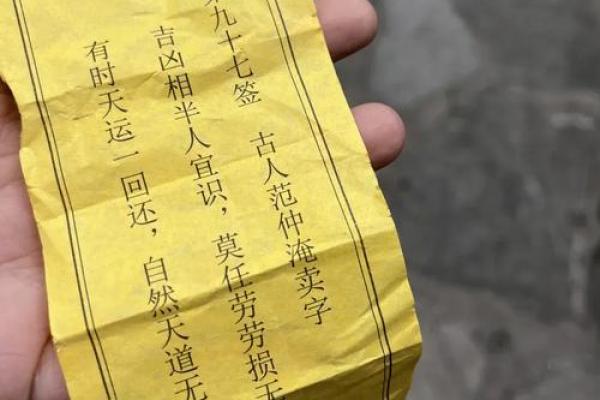 九十七签 古人范仲淹卖字
吉凶相半人宜识，莫任劳劳损无
有时天运一回还，自然天道无